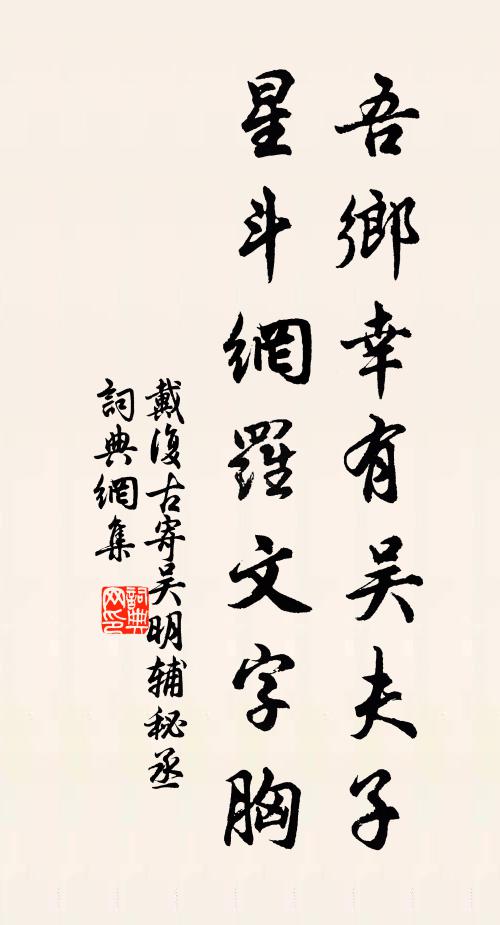 吾鄉幸有吴夫子
星斗網羅文字胸
戴復古寄吴明辅秘丞
詞典網集
詞典网印